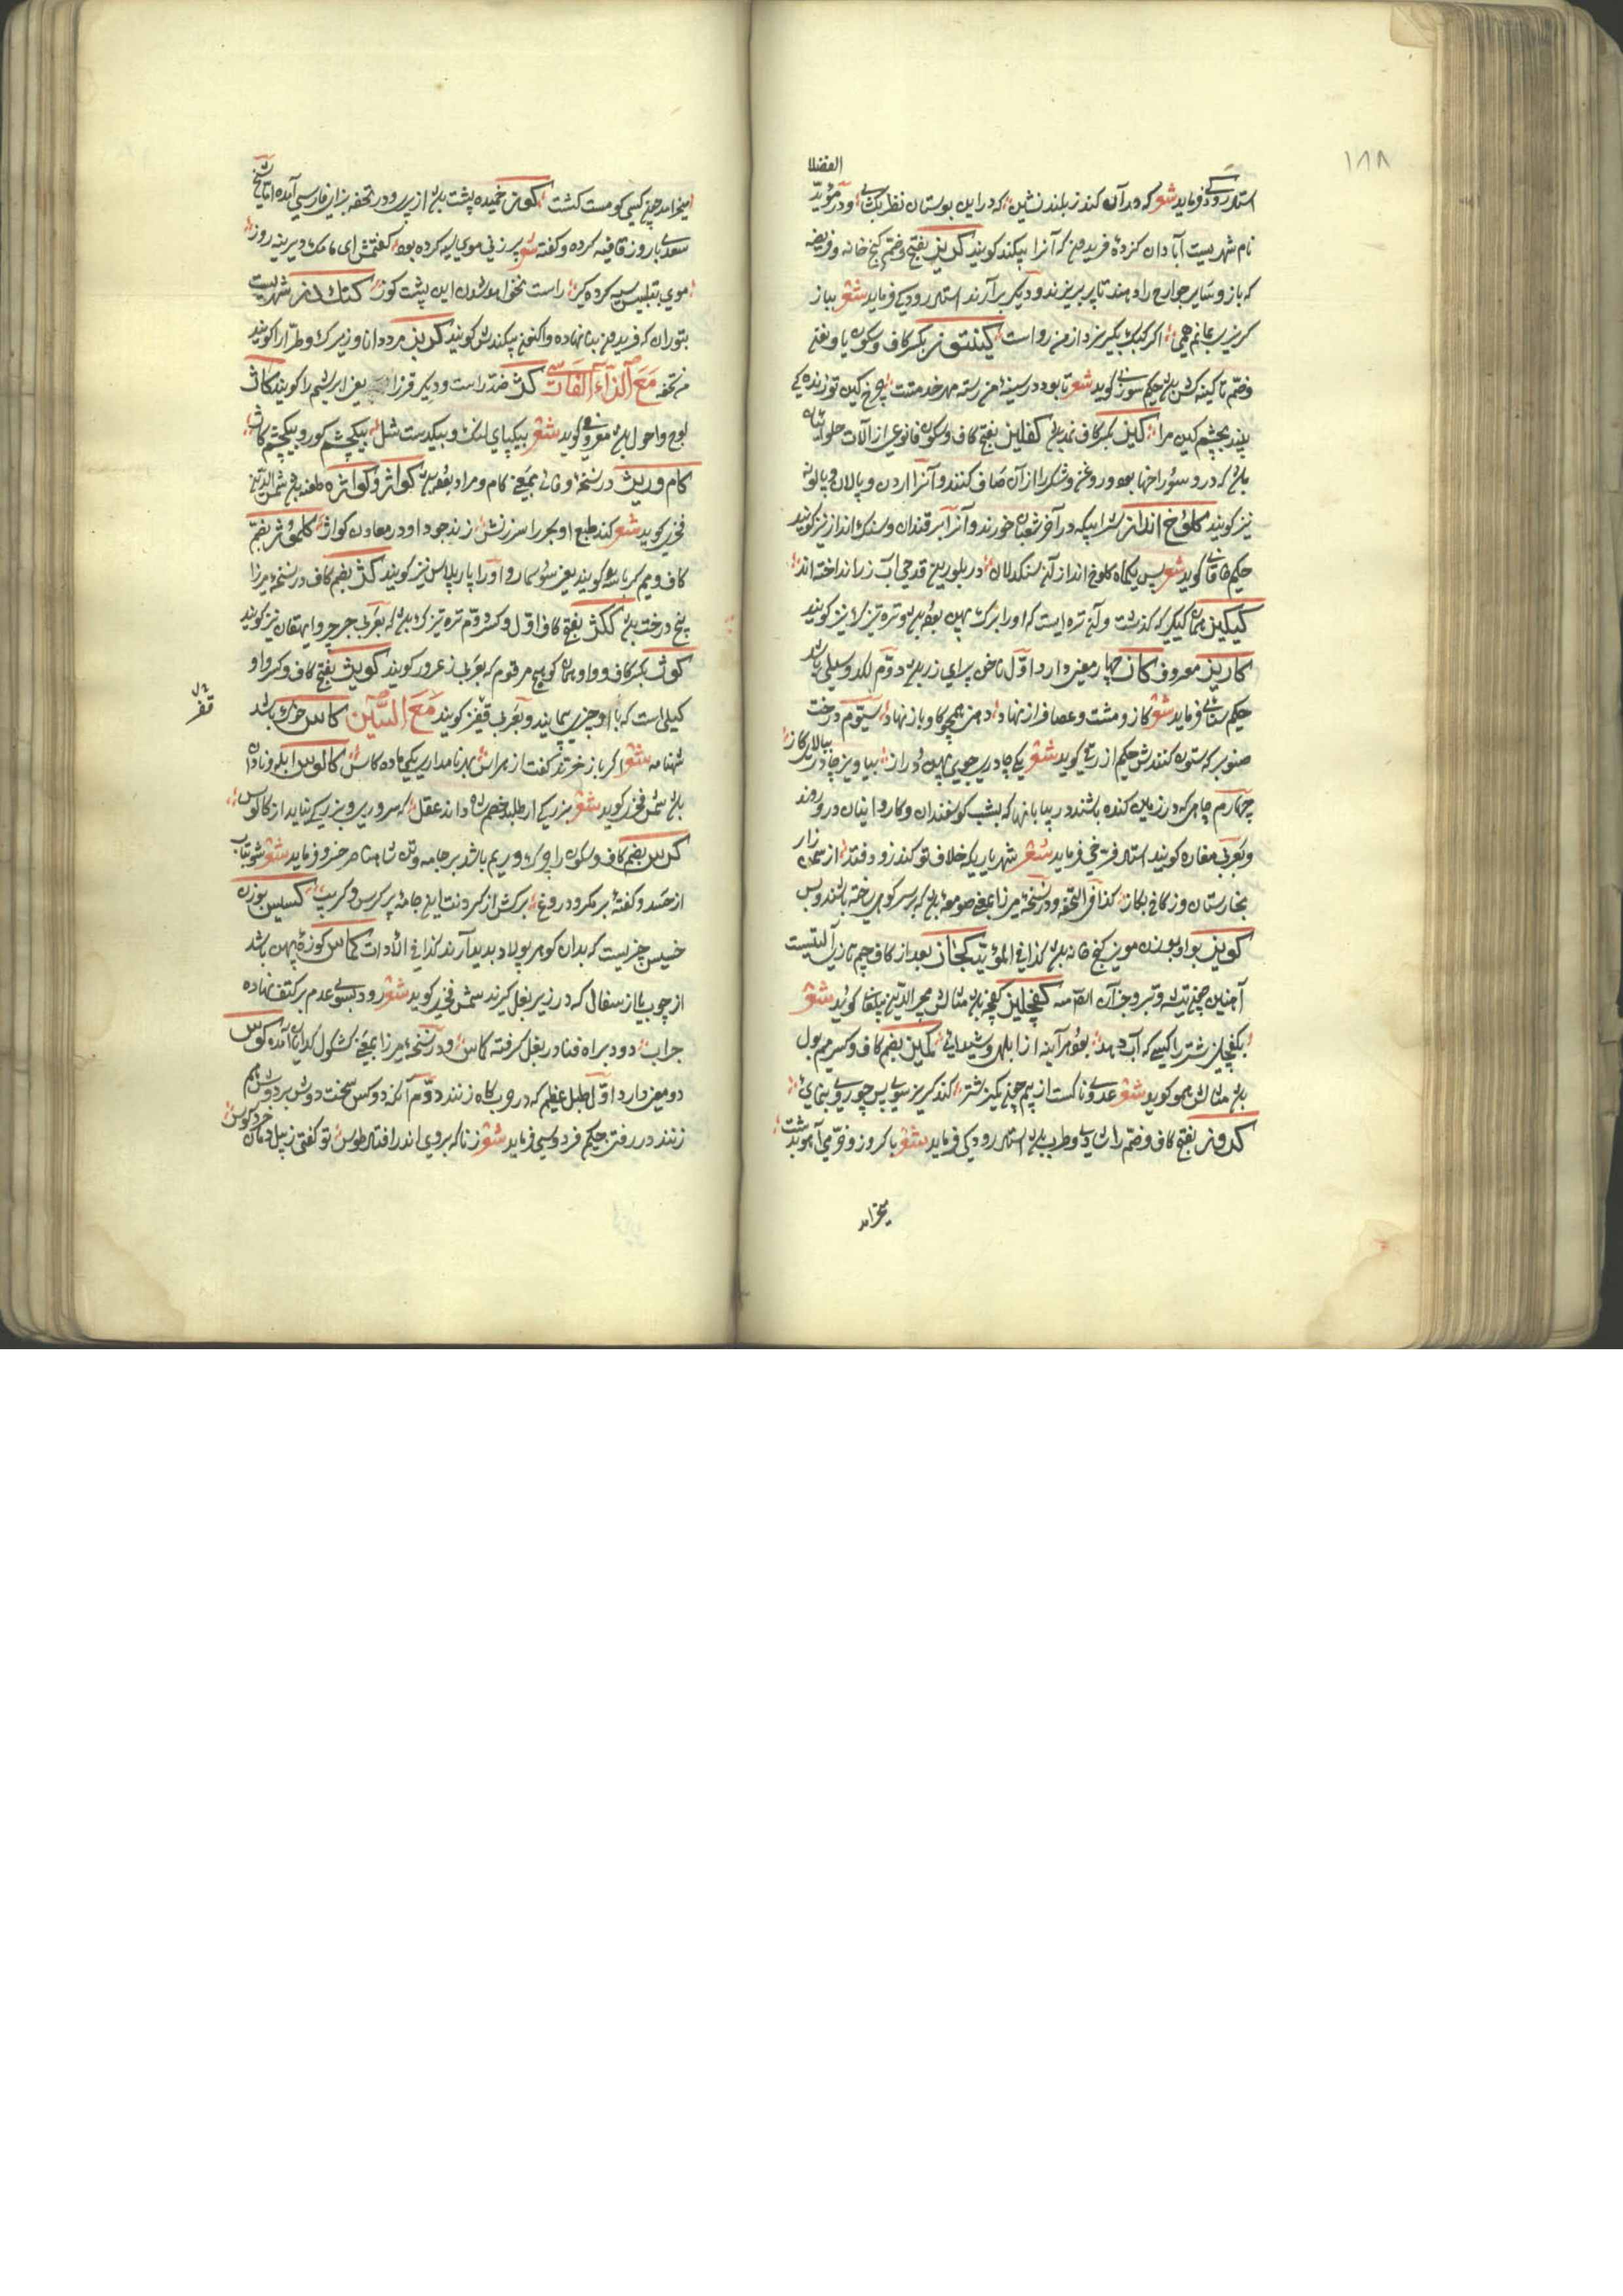 ۱۸۸
الفضلا
استاد رودکی فرماید شعر که در آن کندز بلند نشین که در این بوستان نظر بگشای و در مؤید
نام شهریست آبادان کرده فریدون که آنرا بیکند کویند کریز بفتح و ضم کنج خانه و قریضه
که باز و سایر جوارح را دهند تا پر بریزند و دیکر برآرند استاد رودکی فرماید شعر بباز
کریزی بمانم همی اکر کبک بکریزد از من رواست کینتوز بکسر کاف و سکون یا و نفتح
و ضم تا کینه کش باشد حکیم سوزنی کوید شعر تا بود در سینه من رسته مهر خدمتت چرخ کین توز نده کی
بیند بچشم کین مرا کلیز بکسر کاف نمد باشد کفلیز بفتح کاف و سکون فا نوعی از آلات حلوائیان
باشد که درو سوراخها بود و روغن و شکر را از آن صاف کنند و آنرا اردن و پالان و پالونه
نیز کویند کلوخ انداز شرابیکه در آخر شعبان خورند و آنرا برقندان و سنک انداز نیز کویند
حکیم خاقانی کوید شعر پس یکماه کلوخ انداز آنه سنکدلان در بلورین قدحی آب زر انداخته اند
کیکیز همان کیکیر که کذشت و آن تره ایست که او را برک پهن بود و تره تیزک نیز کویند
کاریز معروف کاز چهار معنی دارد اول ناخن پیرای زر باشد دوم لکد و سیلی باشد
حکیم سنائی فرماید شعر کاز و مشت و عصا فراز نهاد دهن همچو کاو باز نهاد سیوم درخت
صنوبر که ستون کنندش حکیم ازرقی کوید شعر یکی چادری جوی پهن و دراز بیاویز چادر ز بالای کاز
چهارم جایی که در زمین کنده باشند در بیابانها که بشب کوسفندان و کاروانیان درو روند
و بعربی مغاره کویند استاد فرخی فرماید شعر شهریاریکه خلاف تو کند زود فتد از سمن زار
بخارستان وز کاخ بکاز کذا فی التحفه و در نسخه میرزا بمعنی صومعه باشد که بر سر کوهی ساخته باشند و بس
کویز بواو بوزن مویز کنج خانه باشد کذا فی المؤید کجاز بعد از کاف جیم تازی آلتیست
آهنین چون تیشه و تبر و جز آن کفچلیز کفچه باشد مثالش مجیر الدین بیلقانی کوید شعر
بکفچلیز شتر را کسی که آب دهد بود هر آینه از ابلهی و شیدائی کمیز بضم کاف و کسر میم بول
باشد مثالش همو کوید شعر عدوی ناکست از بیم چون کمیز شتر کند کریز سوی پس چو روی بنمای
کدوز بفتح کاف و ضم راء شادی و طرب باشد استاد رودکی فرماید شعر باکروز و خرمی آهو بدشت
میخرامد
میخرامد چون کسی کو مست کشت کوز خمیده پشت باشد از پیری و در تحفه بزای فارسی آمده اما شیخ
سعدی با روز قافیه کرده و کفته شعر پیر زنی موی سیه کرده بود کفتمش ای مامک دیرینه روز
موی بتلبیس سیه کرده کیر راست نخواهد شدن این پشت کوز کنک دز شهریست
بتوران که فریدون بنا نهاده و اکنون بیکندش کویند کربز مرد دانا و زیرک و طرار را کویند
من تحفه مع الزاء الفارسی کژ ضد راست و دیکر قز را یعنی ابریشم را کویند کاژ
لوج و احول باشد معروفی کوید شعر بیکپای لنک و بیکدست شل بیکچشم کور و بیکچشم کاژ
کام وریژ در نسخه وفائی بمعنی کام و مراد بود کواژ و کواژه طعنه باشد شمس الدین
فخری کوید شعر کند طبع او بحر را سرزنش زند جود او در معادن کواژ کلموژ بضم
کاف و میم کرباسه را کویند یعنی سوسمار و او را پارپلاس نیز کویند کژ بضم کاف در نسخه میرزا
بیخ درخت باشد ککژ بفتح کاف اول و کسر دوم تره تیزک باشد که بعربی جرجیر و ایهقان نیز کویند
کوژ بکسر کاف و واو همان کویچ مرقوم که بعربی زعرور کویند کویژ بفتح کاف و کسر واو
کیلی است که با او چیزی پیمایند و بعربی قفیز کویند مع السین کاس خوک باشد
قفیز
شهنامه شعر اکر باز خری کفت از پهراش بد نامداری یکی ماده کاس کالوس ابله و نادان
باشد شمس فخری کوید شعر بزرکی ار طلبد خصم شه داند عقل که سروری و بزرکی نیاید از کالوس
کرس بضم کاف و سکون را چرک و ریم باشد بر جامه و تن ناصر خسرو فرماید شعر شو بتاب
از حسد و کفته بر مکر و دروغ برکش از کردنت این جامه پر کرس و کریب کسیس بوزن
خسیس چیزیست که بدان کوهر پولاد پدید آرند کذا فی الادات کماس کوزه پهن باشد
از چوب یا از سفال که در زیر بغل کیرند شمس فخری کوید شعر رود بسوی عدم بر کتف نهاده
جراب دود براه فنا در بغل کرفته کماس و در نسخه میرزا بمعنی کشکول کدایان آمده کوس
دو معنی دارد اول طبل عظیم که در حرب کاه زنند دوم آنکه دو کس سخت دوش بر دوش هم
زنند در رفتن حکیم فردوسی فرماید شعر ز ناکه بروی اندر افتاد طوس تو کفتی ز پیل دمان خورد کوس